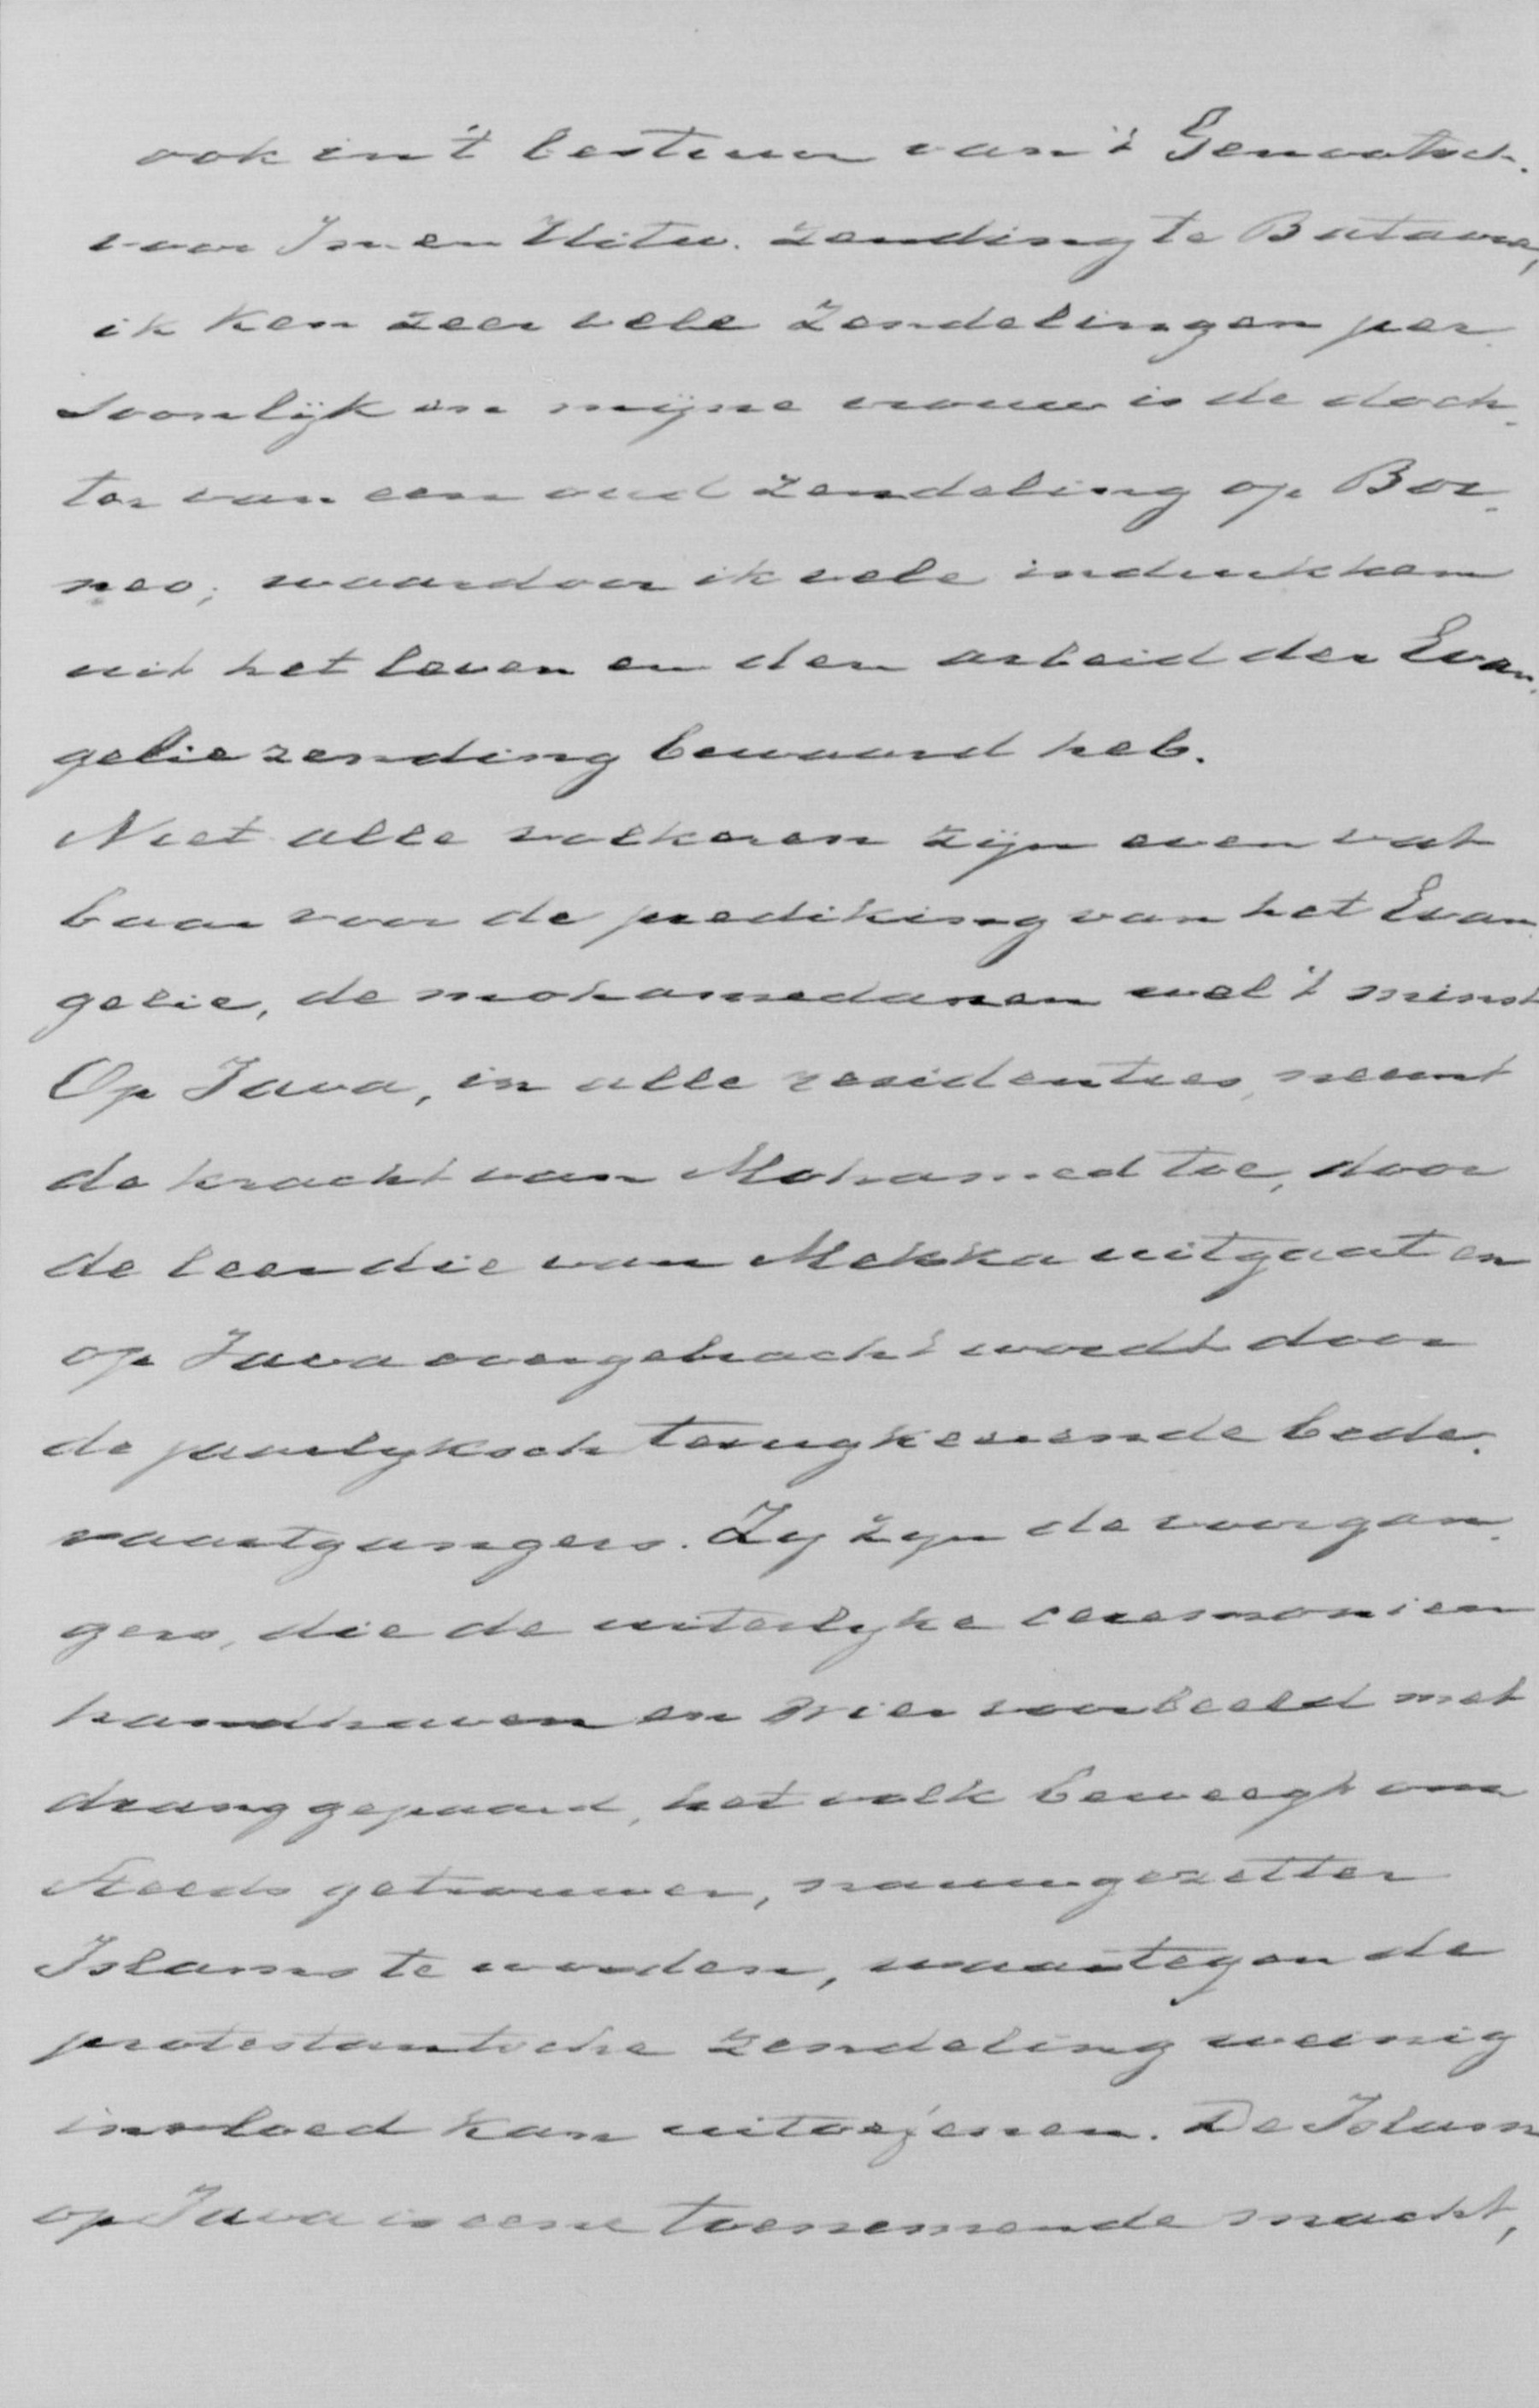 ook in 't bestuur van 't Genootsch.
voor In. en Uitw. Zending te Batavia,
ik ken zeer vele Zendelingen per
soonlijk en mijne vrouw is de doch-
ter van een oud Zendeling op Bor-
neo; waardoor ik vele indrukken
uit het leven en den arbeid der Evan-
geliezending bewaard heb.
Niet alle volkeren zijn even vat
baar voor de prediking van het Evan-
gelie, de mohamedanen wel 't minst
Op Java, in alle residenties, neemt
de kracht van Mohamed toe, door
de leer die van Mekka uitgaat en
op Java overgebracht wordt door
de jaarlyksch terugkeerende bede-
vaartgangers. Zy zyn de voorgan-
gers, die de uiterlyke ceremonien
handhaven en wier voorbeeld met
drang gepaard, het volk beweegt om
steeds getrouwer, nauwgezetter
Islams te worden, waartegen de
protestantsche zendeling weinig
invloed kan uitoefenen. De Islam
op Java is eene toenemende macht,